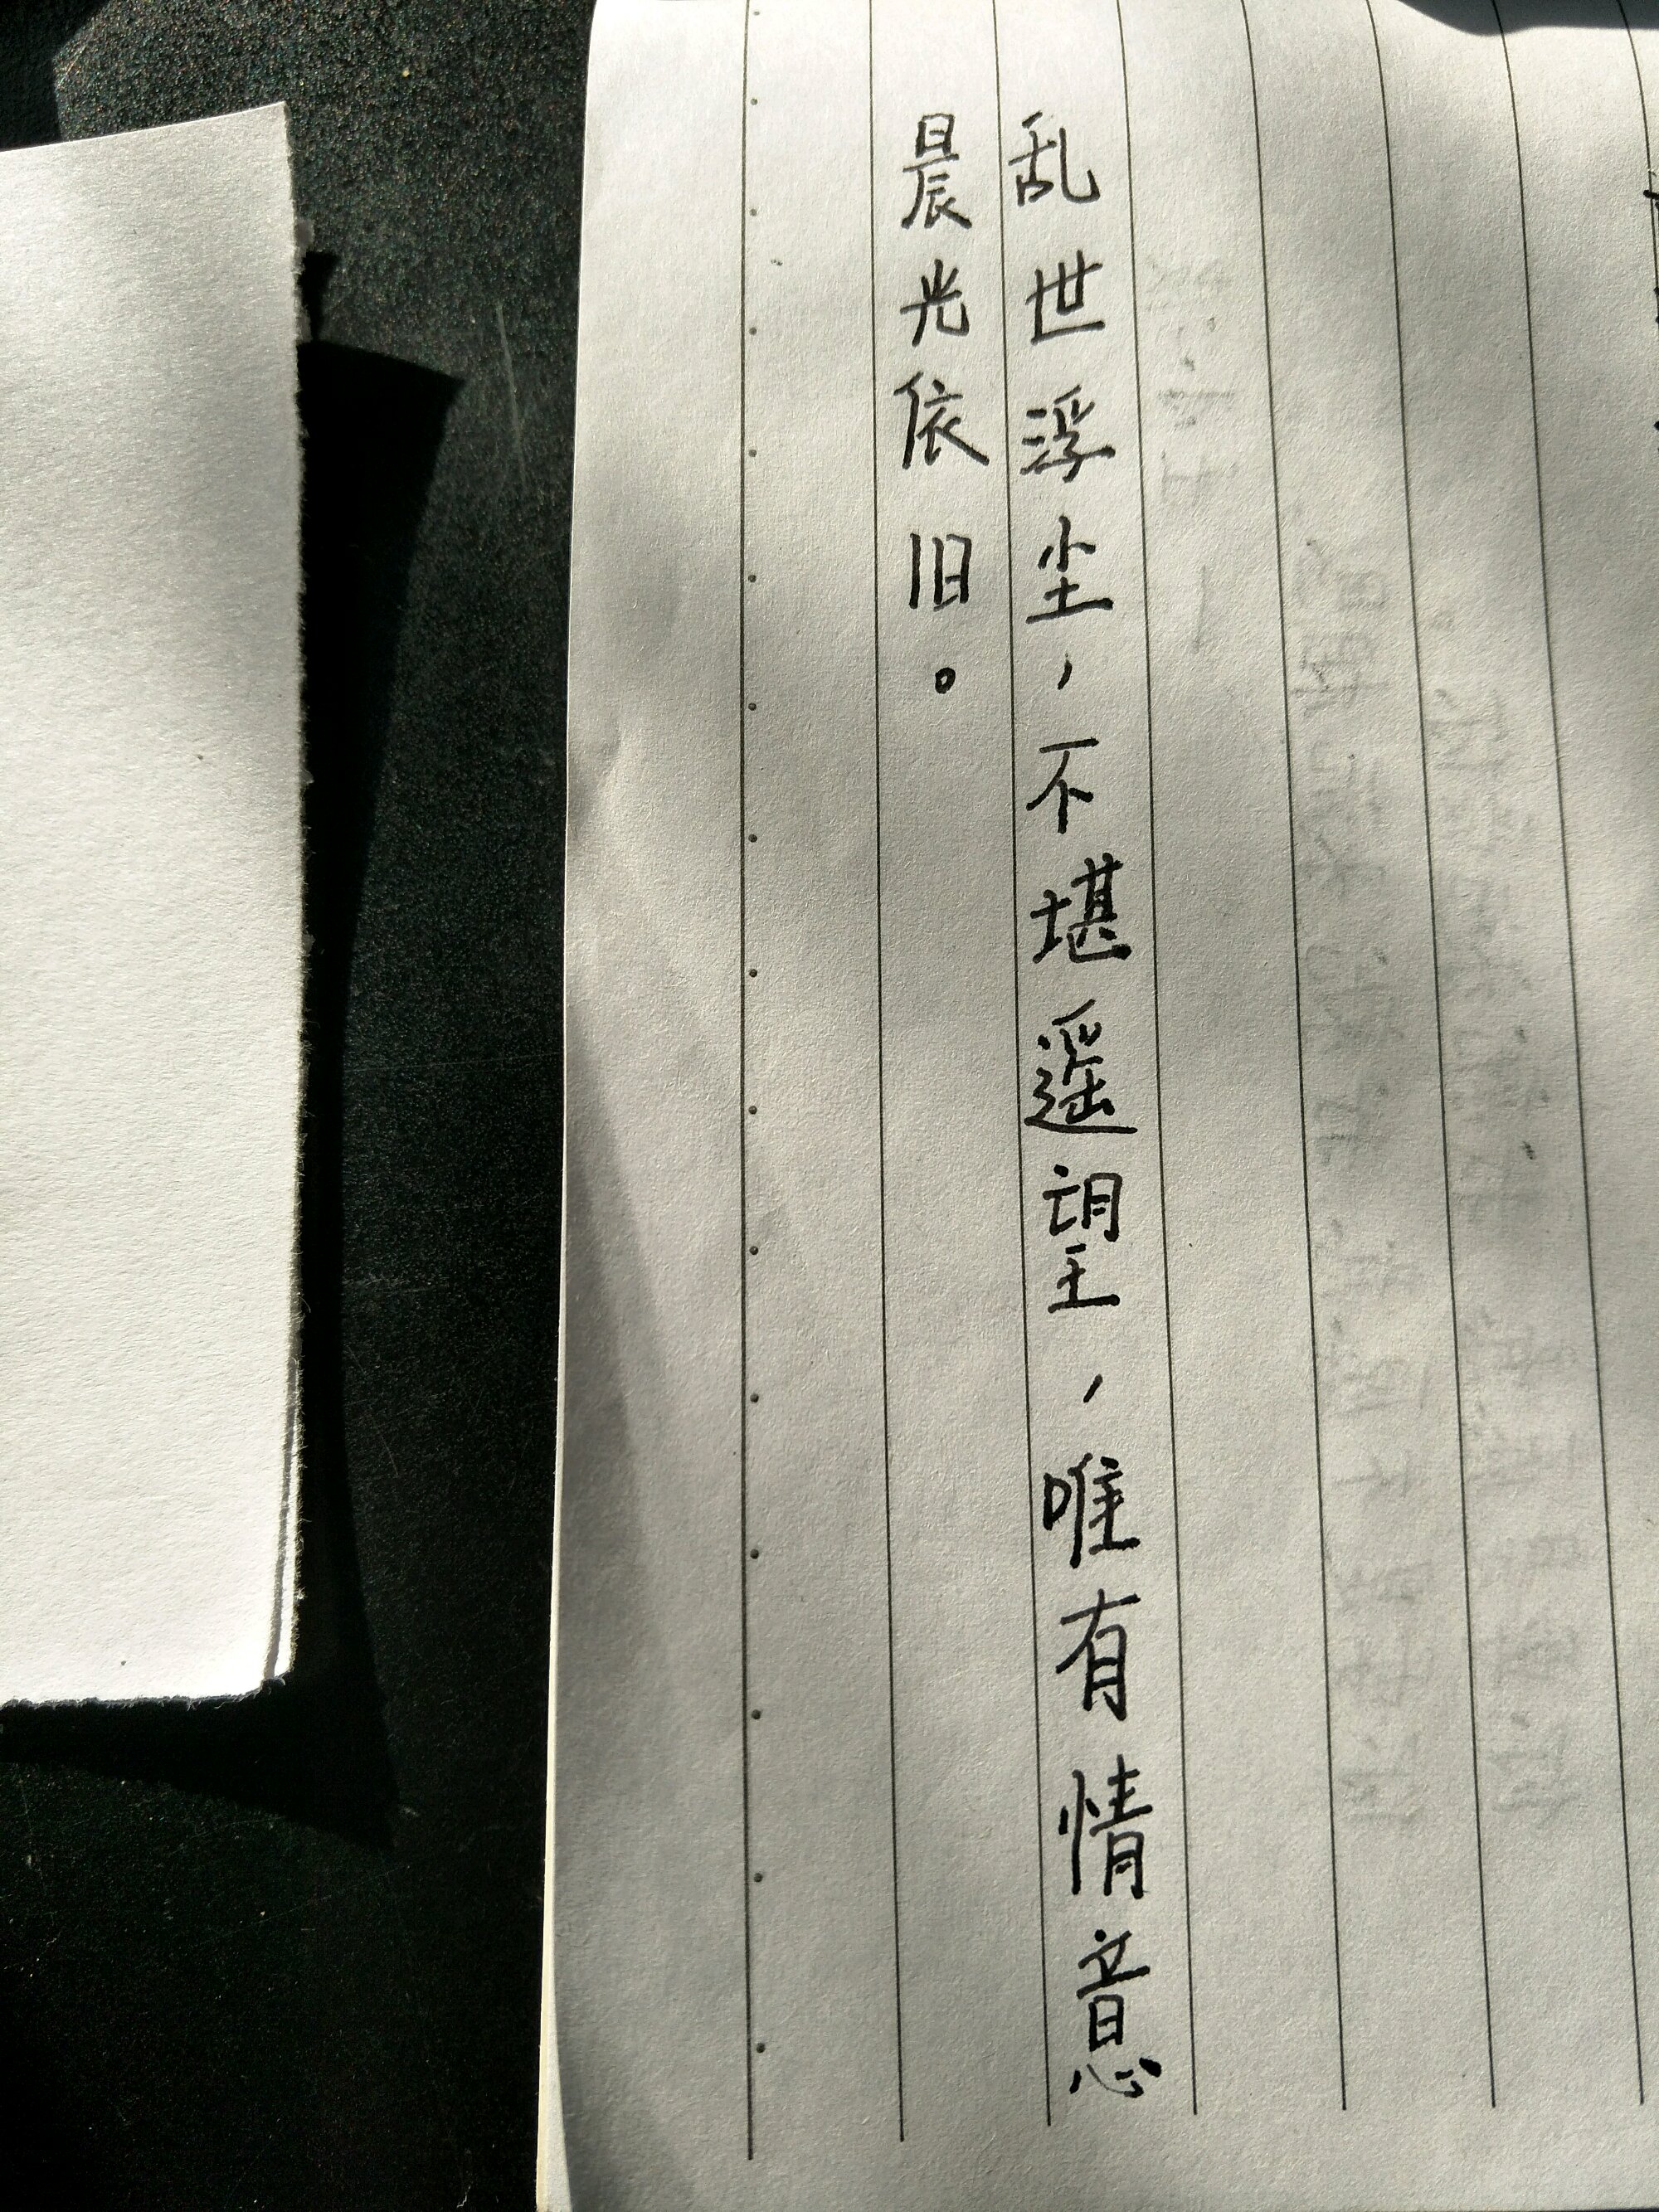 乱世浮尘，不堪遥望，唯有情意
晨光依旧。